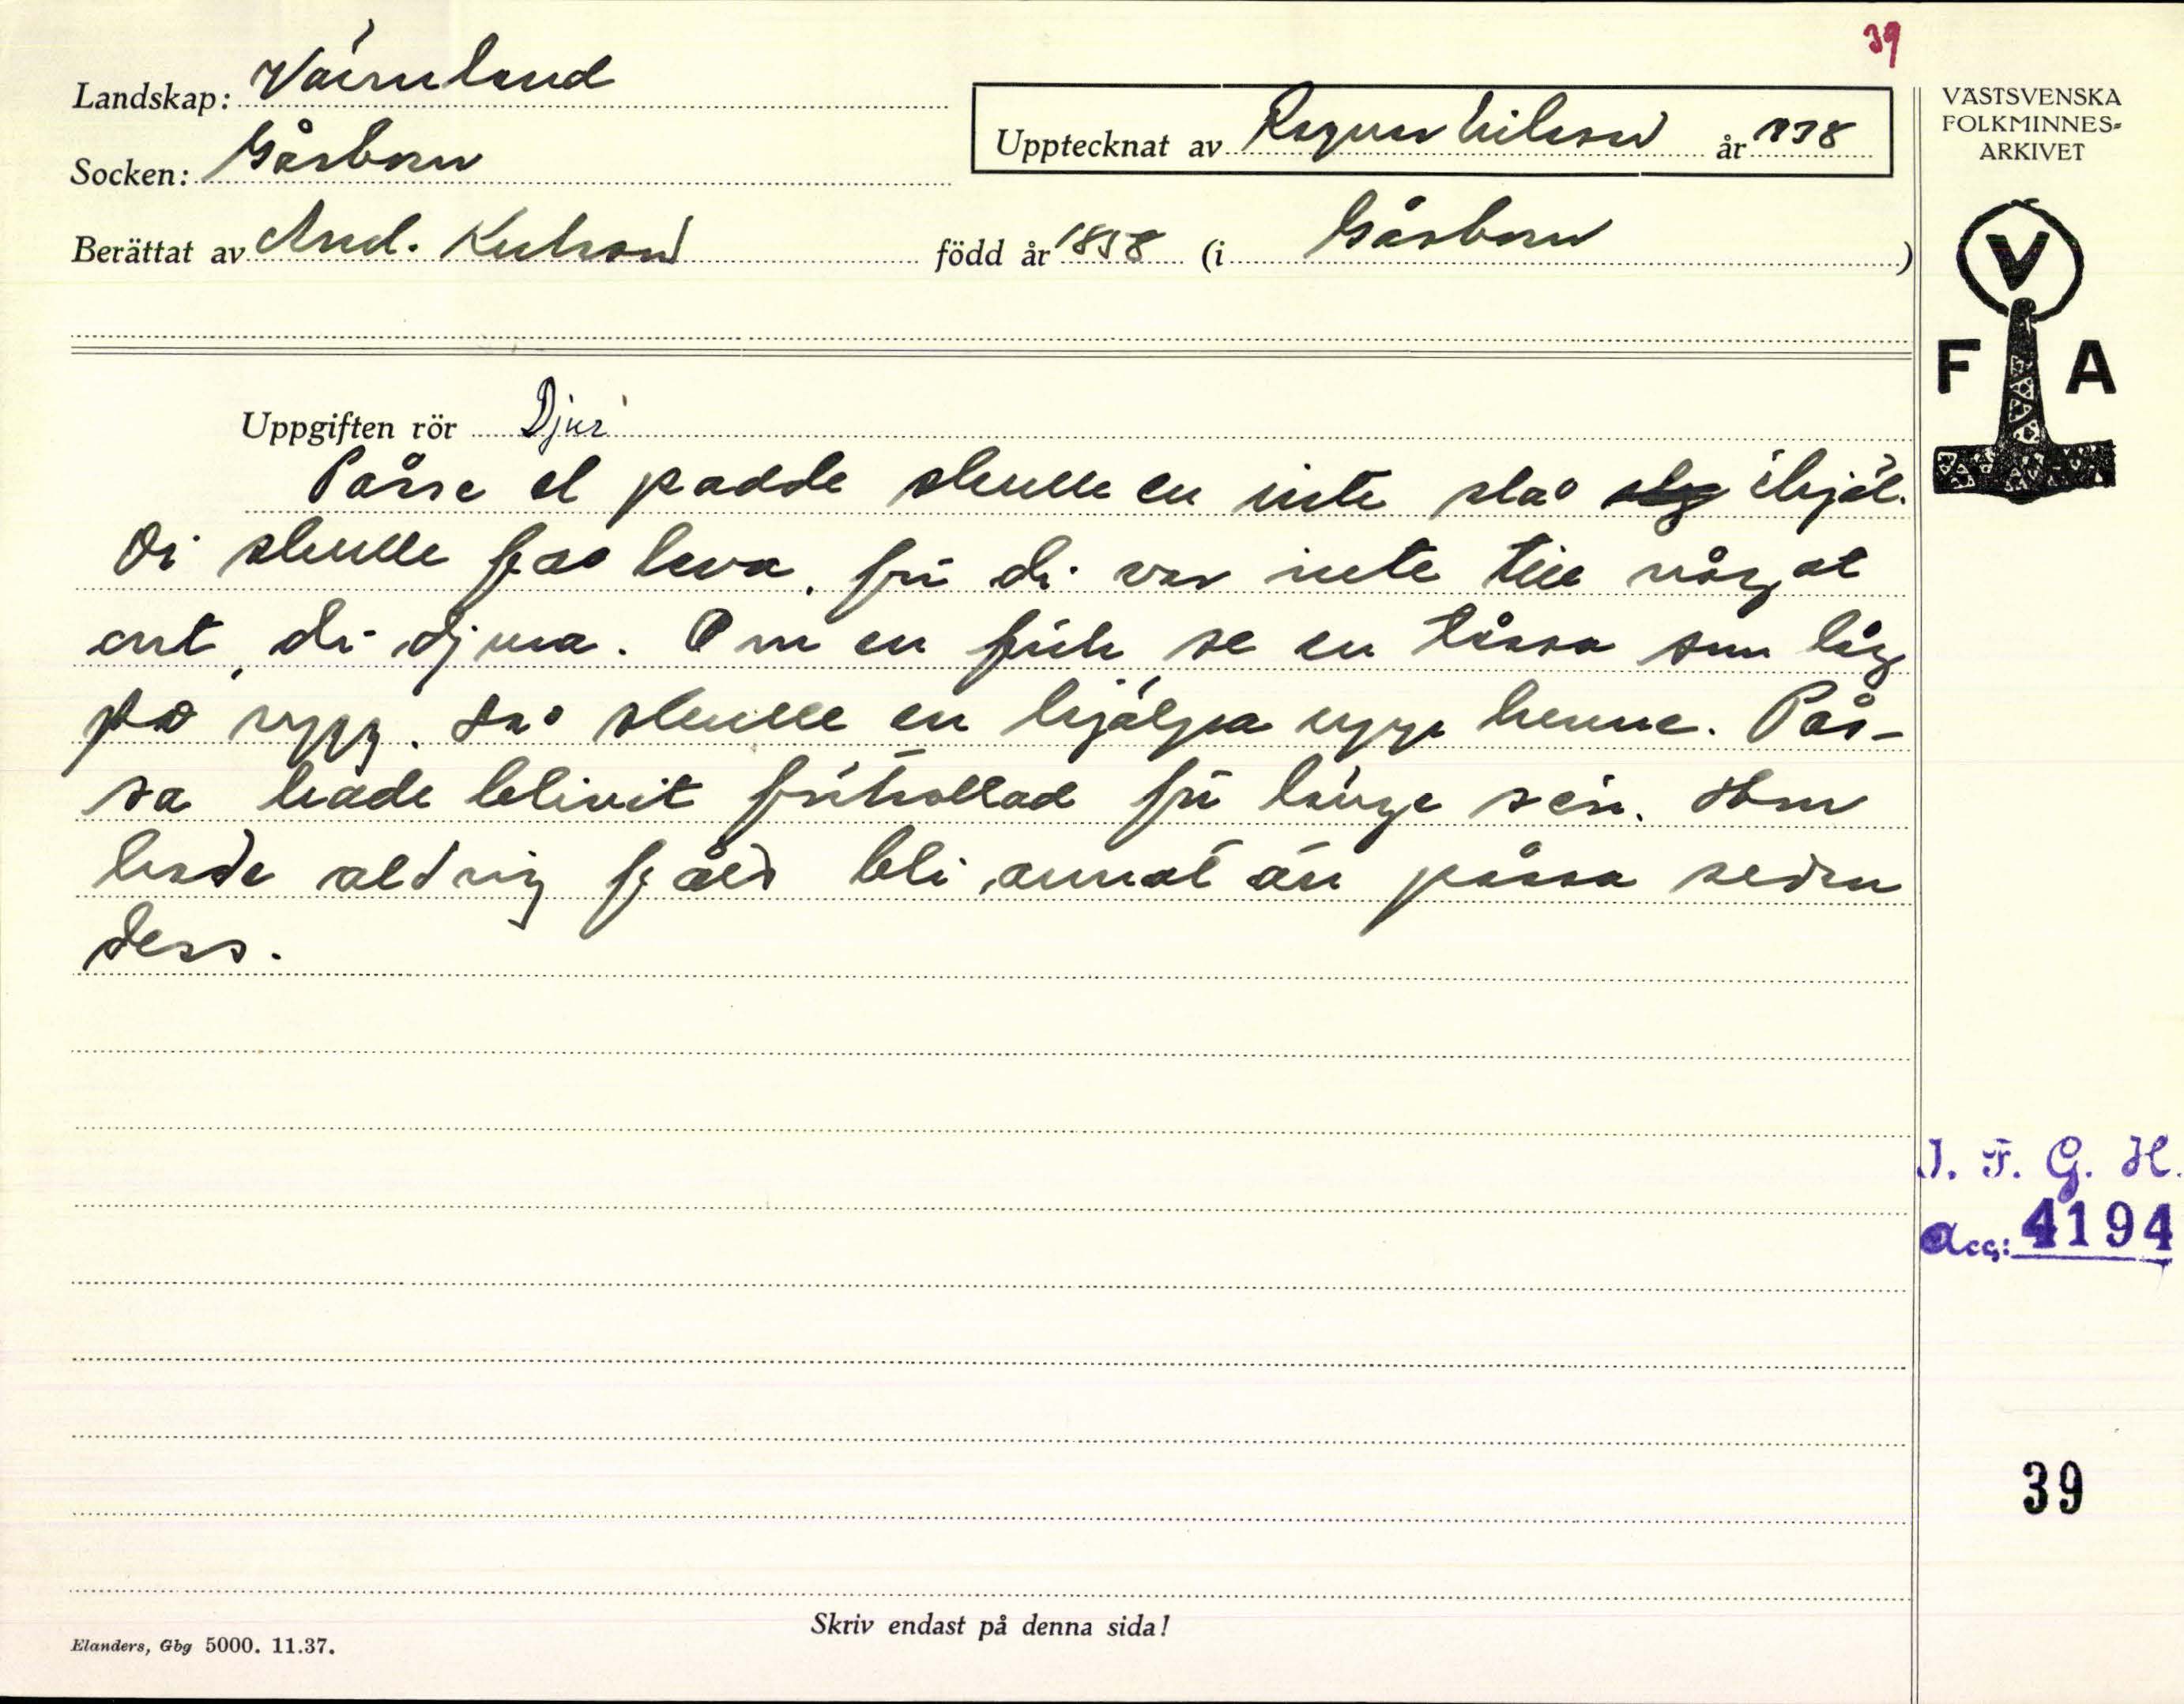 39
Landskap: Värmland
Socken: Gåsborn
Upptecknat av Ragnar Nilsson år 1938
Berättat av And. Knutsson född år 1858 (i Gåsborn)
VÄSTSVENSKA
FOLKMINNES-
ARKIVET
V
F A
Uppgiften rör Djur
Påsse el padde skulle en inte slå ihjäl.
Di skulle få leva, för di var inte till något
ont, di djura. Om en fick se en tåssa som låg
på rygg, så skulle en hjälpa upp henne. Pås-
sa hade blivit förtrollad för länge sen. Hon
hade aldrig fått bli annat än påssa sedan
dess.
I. F. G. H.
Acc: 4194
39
Skriv endast på denna sida!
Elanders, Gbg 5000. 11.37.